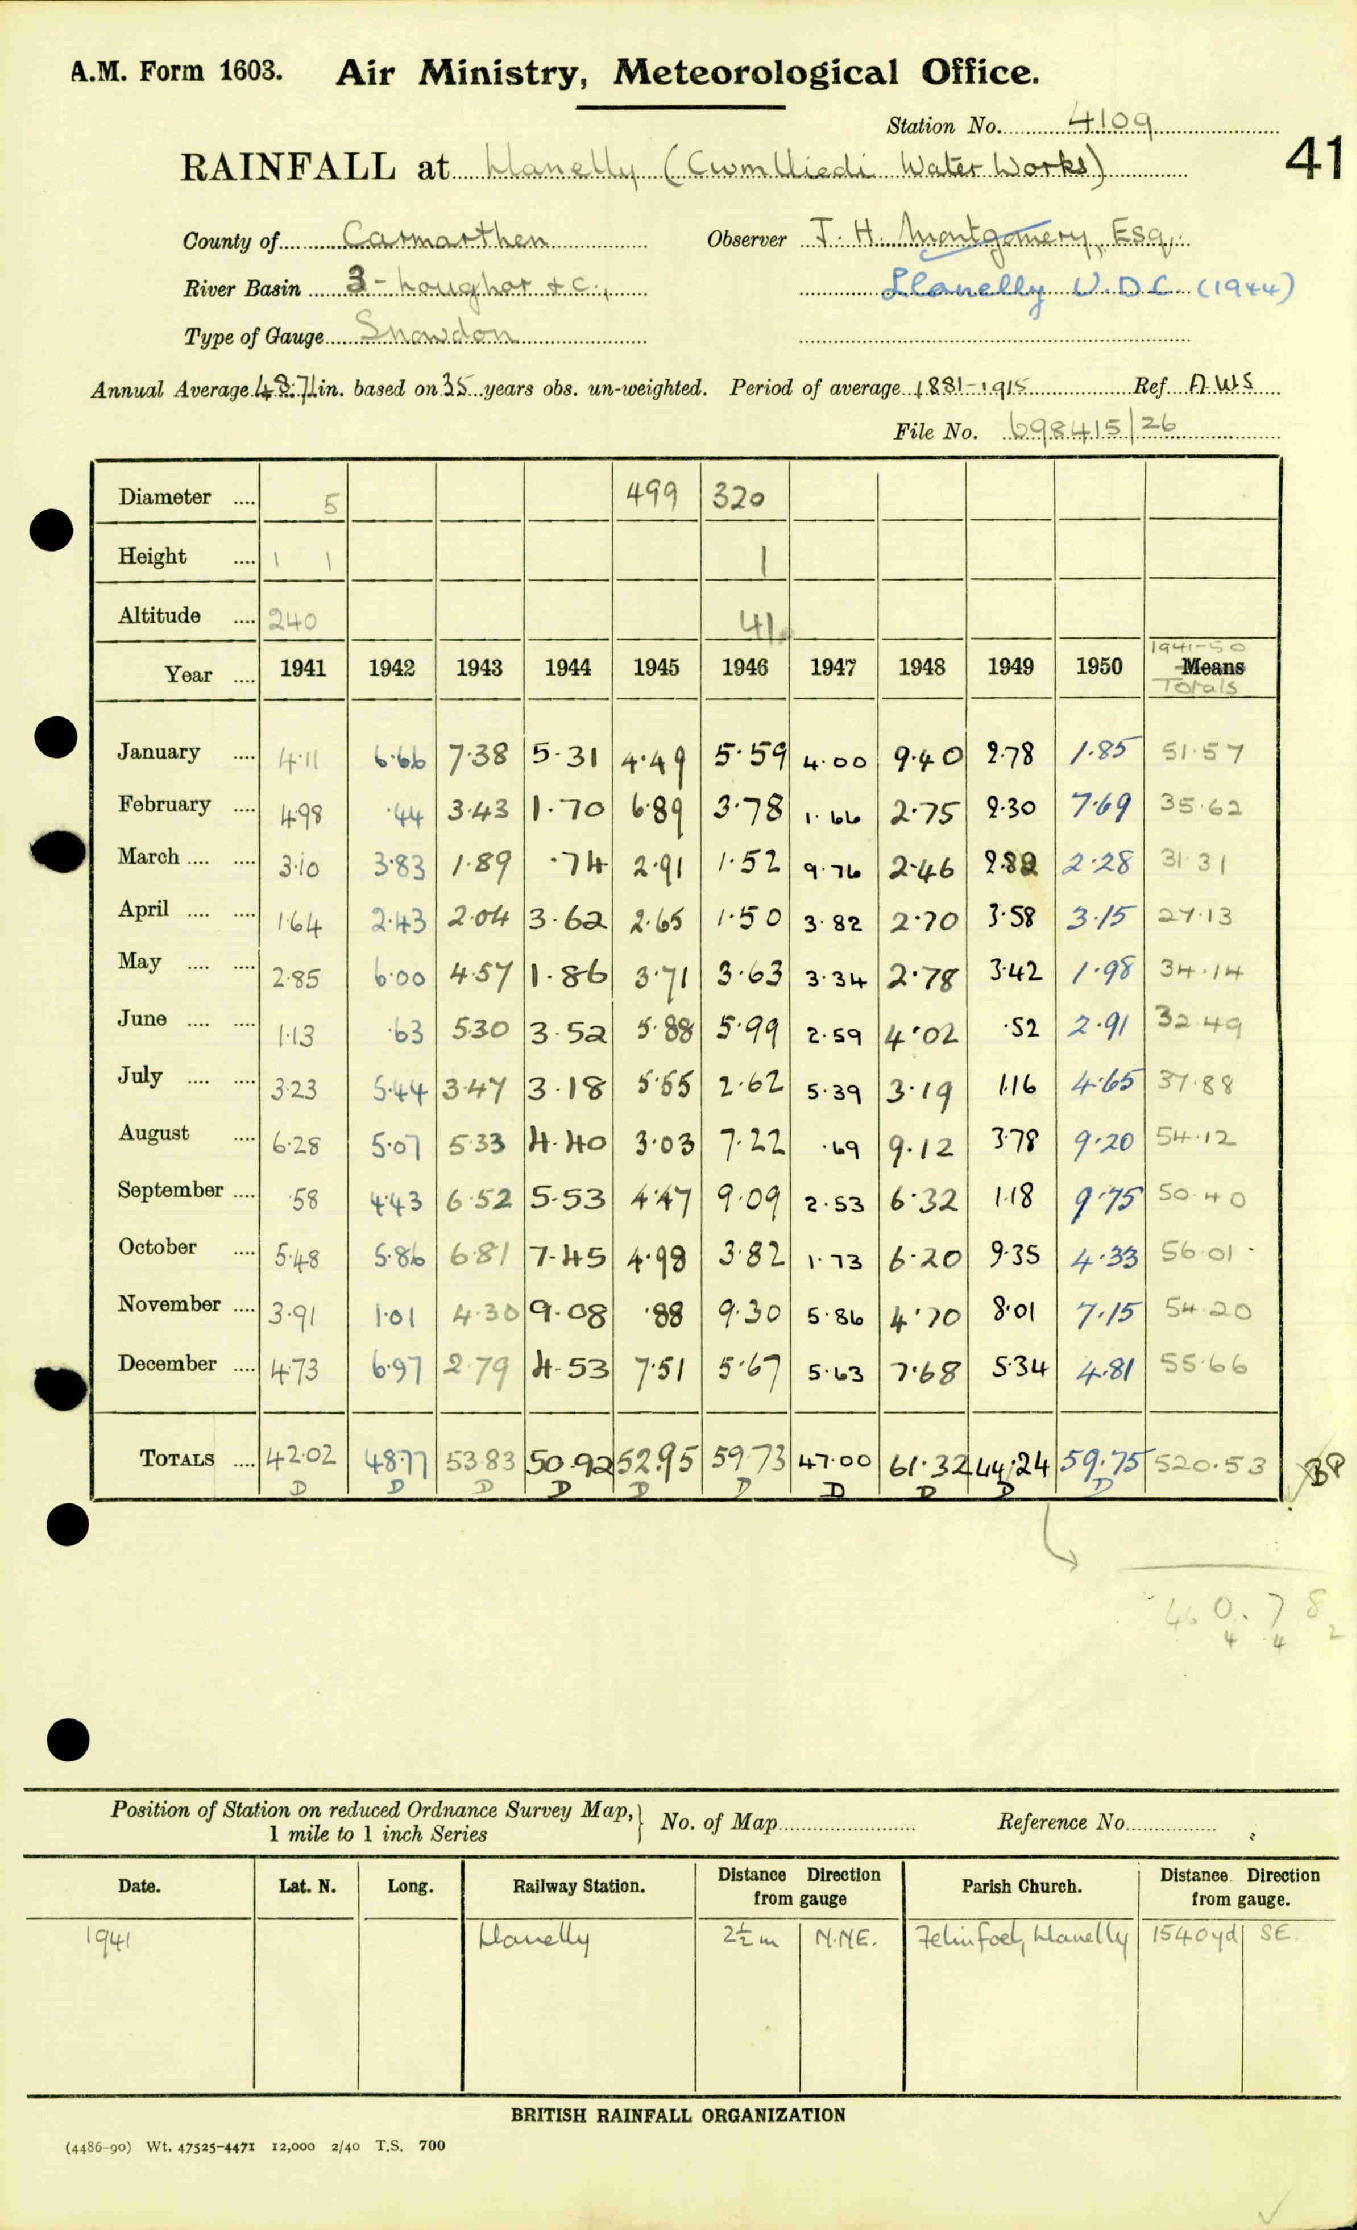 A.M. Form 1603. Air Ministry, Meteorological Office.
Station No. 4109
41
RAINFALL at Llanelly (Cwmlliedi Water Works)
County of Carmarthen Observer J. H. Montgomery, Esq.
River Basin 3 - Loughor & C., Llanelly U.D.C. (1944)
Type of Gauge Snowdon
Annual Average 48.71 in. based on 35 years obs. un-weighted. Period of average 1881-1915 Ref. A.W.S
File No. 698415/26
Diameter .... 5 499 320
Height .... 1 1 1
Altitude .... 240 41
1941-50
Year .... 1941 1942 1943 1944 1945 1946 1947 1948 1949 1950 Means
Totals
January .... 4.11 6.66 7.38 5.31 4.49 5.59 4.00 9.40 2.78 1.85 51.57
February .... 4.98 .44 3.43 1.70 6.89 3.78 1.66 2.75 2.30 7.69 35.62
March .... .... 3.10 3.83 1.89 .74 2.91 1.52 9.76 2.46 2.82 2.28 31.31
April .... .... 1.64 2.43 2.04 3.62 2.65 1.50 3.82 2.70 3.58 3.15 27.13
May .... .... 2.85 6.00 4.57 1.86 3.71 3.63 3.34 2.78 3.42 1.98 34.14
June .... .... 1.13 .63 5.30 3.52 5.88 5.99 2.59 4.02 .52 2.91 32.49
July .... .... 3.23 5.44 3.47 3.18 5.55 2.62 5.39 3.19 1.16 4.65 37.88
August .... 6.28 5.07 5.33 4.40 3.03 7.22 .69 9.12 3.78 9.20 54.12
September .... .58 4.43 6.52 5.53 4.47 9.09 2.53 6.32 1.18 9.75 50.40
October .... 5.48 5.86 6.81 7.45 4.98 3.82 1.73 6.20 9.35 4.33 56.01
November .... 3.91 1.01 4.30 9.08 .88 9.30 5.86 4.70 8.01 7.15 54.20
December .... 4.73 6.97 2.79 4.53 7.51 5.67 5.63 7.68 5.34 4.81 55.66
TOTALS .... 42.02 48.77 53.83 50.92 52.95 59.73 47.00 61.32 44.24 59.75 520.53
D D D D D D D D D D
460.78
4 4 2
Position of Station on reduced Ordnance Survey Map, } No. of Map Reference No.
1 mile to 1 inch Series
Date. Lat. N. Long. Railway Station. Distance Direction from gauge Parish Church. Distance Direction from gauge.
1941 Llanelly 2½ m N.NE. Felinfoel, Llanelly 1540 yd SE.
BRITISH RAINFALL ORGANIZATION
(4486-90) Wt. 47525-4471 12,000 2/40 T.S. 700